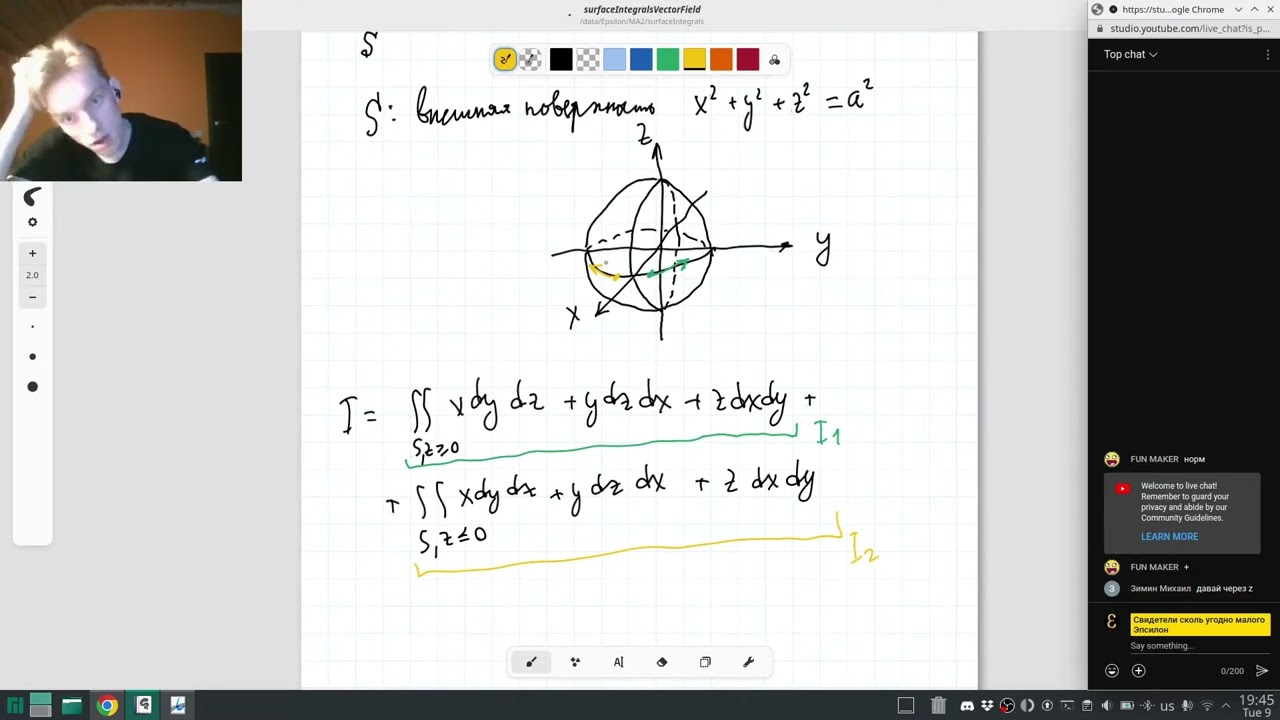 surfaceIntegralsVectorField
/data/Epsilon/MA2/surfaceIntegrals
S
S: внешняя поверхность x² + y² + z² = a²
z
y
x
I = ∬ x dy dz + y dz dx + z dx dy +
S, z ≥ 0
I1
+ ∬ x dy dz + y dz dx + z dx dy
S, z ≤ 0
I2
2.0
https://stu...ogle Chrome
studio.youtube.com/live_chat?is_p...
Top chat
FUN MAKER норм
Welcome to live chat!
Remember to guard your
privacy and abide by our
Community Guidelines.
LEARN MORE
FUN MAKER +
З Зимин Михаил давай через z
Свидетели сколь угодно малого
Эпсилон
Say something...
0/200
us
19:45
Tue 9